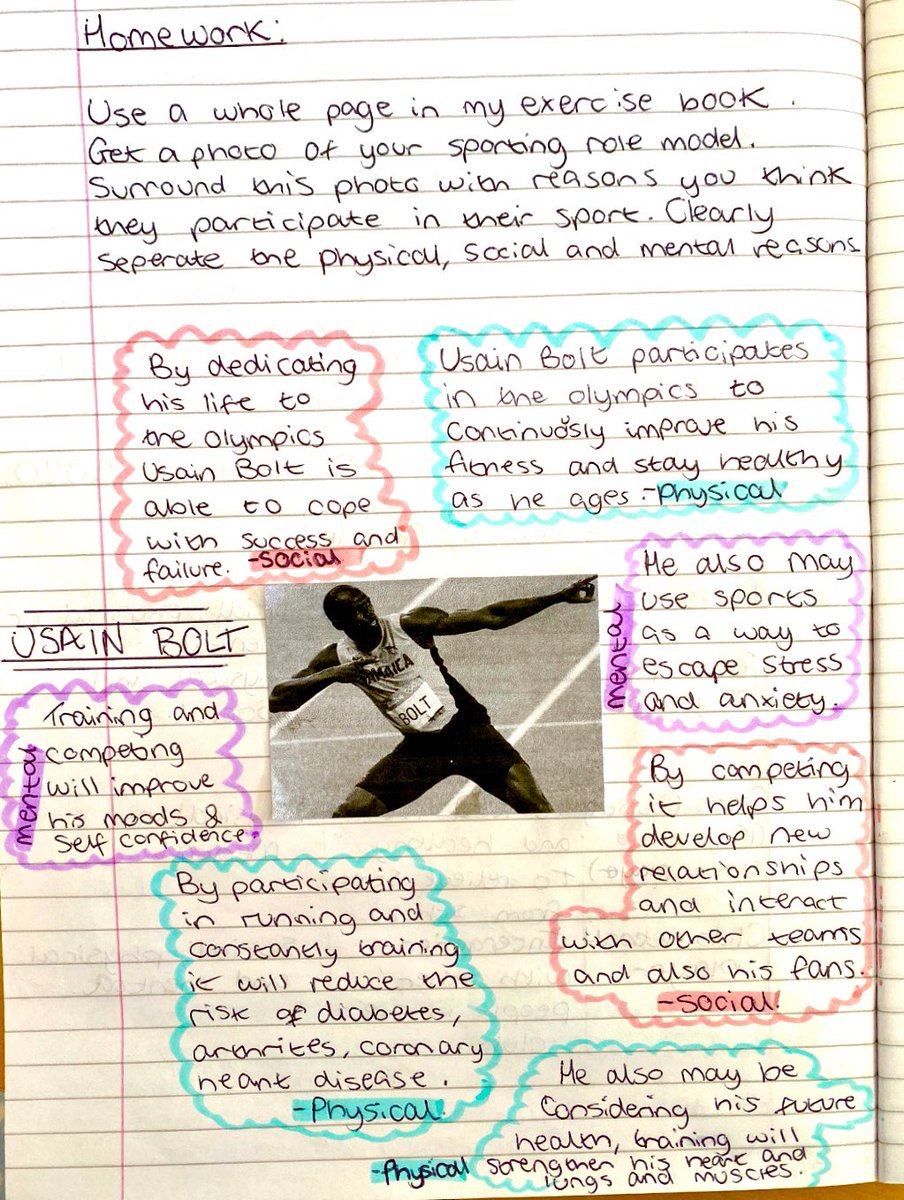 Homework:
Use a whole page in my exercise book.
Get a photo of your sporting role model.
Surround this photo with reasons you think
they participate in their sport. Clearly
seperate the physical, social and mental reasons
By dedicating
his life to
the olympics
Usain Bolt is
able to cope
with success and
failure. -Social
Usain Bolt participates
in the olympics to
continuosly improve his
fitness and stay healthy
as he ages.-Physical
He also may
use sports
as a way to
escape stress
and anxiety.
mental
USAIN BOLT
JAMAICA
BOLT
Training and
competing
will improve
his moods &
self confidence.
mental
By competing
it helps him
develop new
relationships
and interact
with other teams
and also his fans.
-Social
By participating
in running and
constantly training
it will reduce the
risk of diabetes,
arthrites, coronary
heart disease.
-Physical
He also may be
considering his future
health, training will
-Physical strengthen his heart and
lungs and muscles.